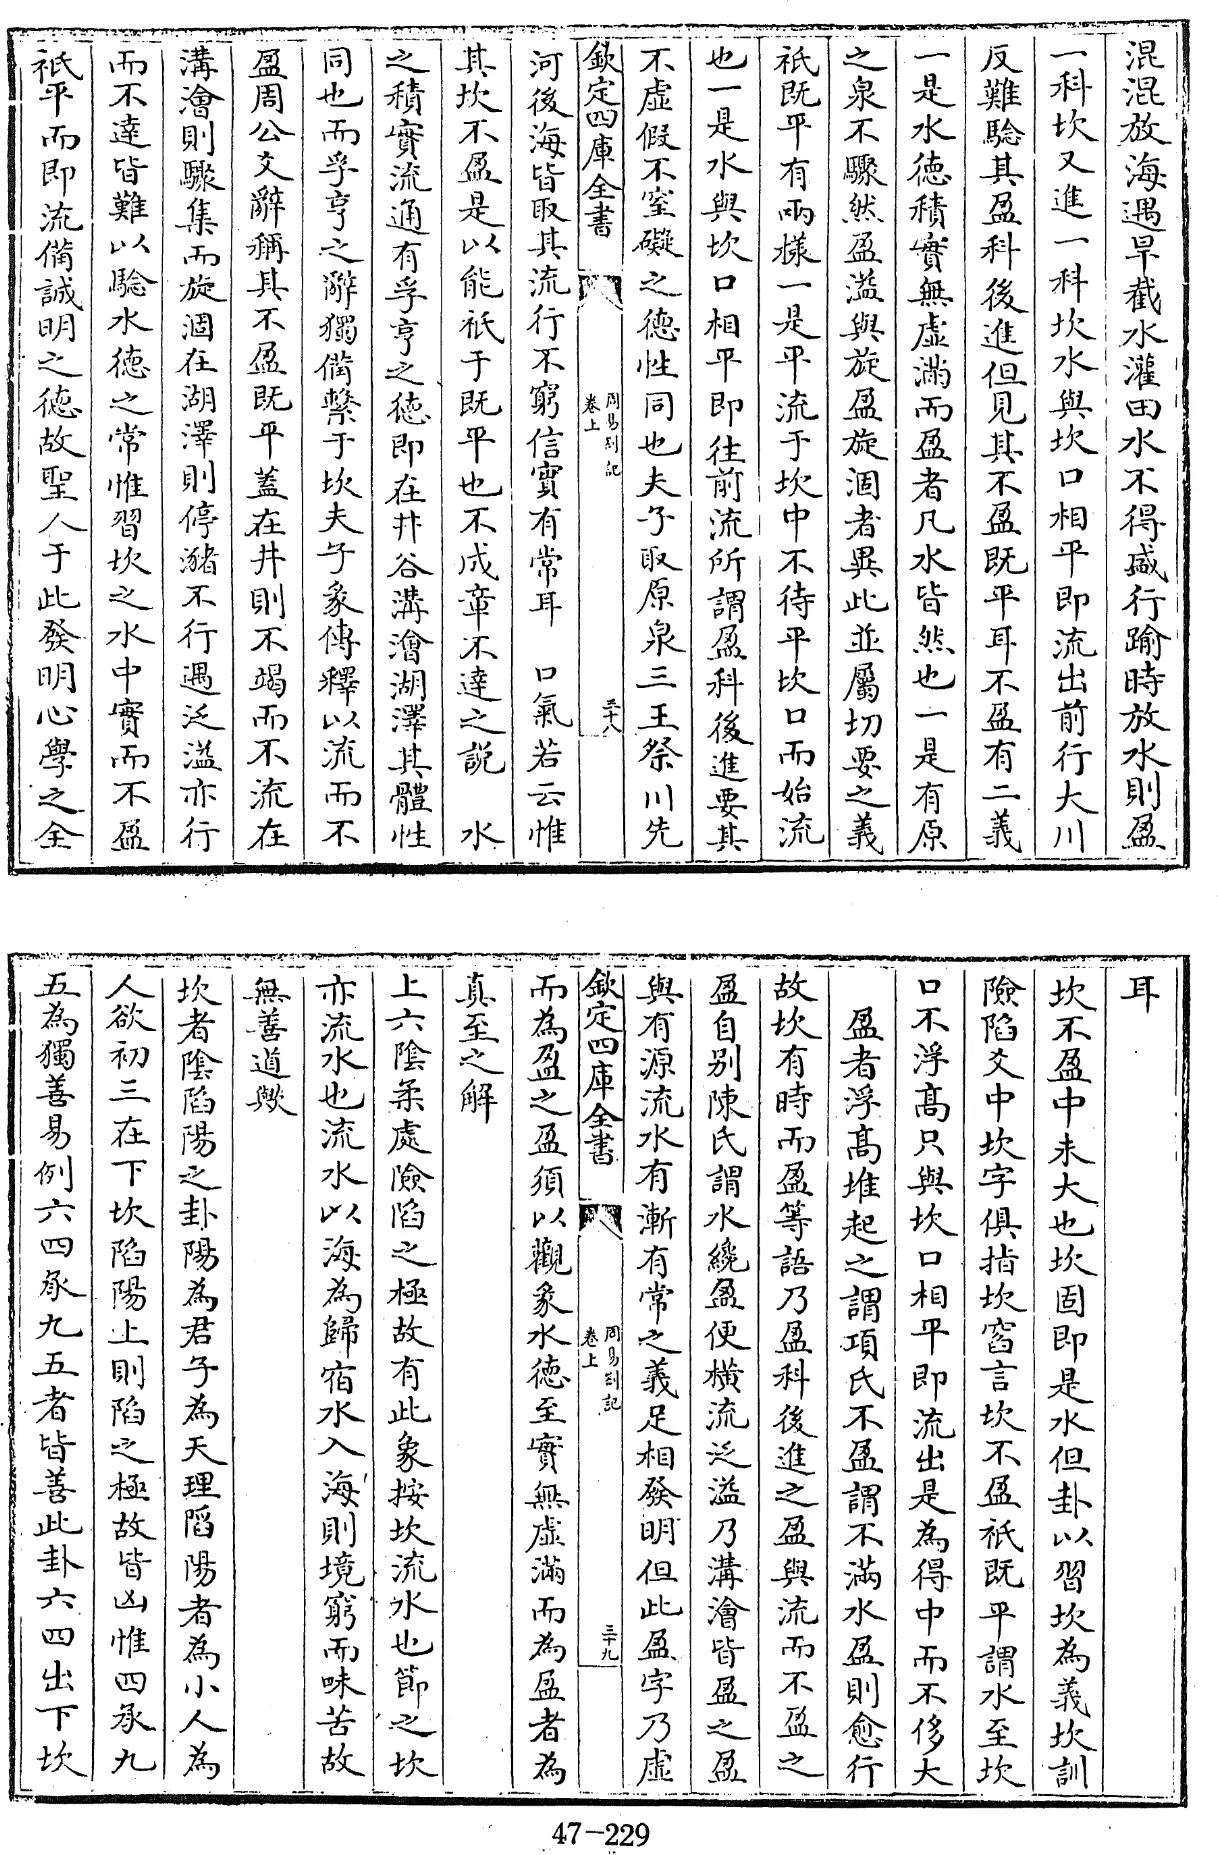 混混放海遇旱截水灌田水不得盛行踰時放水則盈
一科坎又進一科坎水與坎口相平即流出前行大川
反難驗其盈科後進但見其不盈既平耳不盈有二義
一是水德積實無虛滿而盈者凡水皆然也一是有原
之泉不驟然盈溢與旋盈旋涸者異此並屬切要之義
祇既平有兩樣一是平流于坎中不待平坎口而始流
也一是水與坎口相平即往前流所謂盈科後進要其
不虛假不窒礙之德性同也夫子取原泉三王祭川先
欽定四庫全書
周易劄記
卷上
三十八
河後海皆取其流行不窮信實有常耳 口氣若云惟
其坎不盈是以能祇于既平也不成章不達之說 水
之積實流通有孚亨之德即在井谷溝澮湖澤其體性
同也而孚亨之辭獨備繫于坎夫子彖傳釋以流而不
盈周公爻辭稱其不盈既平蓋在井則不竭而不流在
溝澮則驟集而旋涸在湖澤則停瀦不行遇泛溢亦行
而不達皆難以驗水德之常惟習坎之水中實而不盈
祇平而即流備誠明之德故聖人于此發明心學之全
耳
坎不盈中未大也坎固即是水但卦以習坎為義坎訓
險陷爻中坎字俱指坎窞言坎不盈祇既平謂水至坎
口不浮高只與坎口相平即流出是為得中而不侈大
盈者浮高堆起之謂項氏不盈謂不滿水盈則愈行
故坎有時而盈等語乃盈科後進之盈與流而不盈之
盈自別陳氏謂水纔盈便橫流泛溢乃溝澮皆盈之盈
與有源流水有漸有常之義足相發明但此盈字乃虛
欽定四庫全書
周易劄記
卷上
三十九
而為盈之盈須以觀象水德至實無虛滿而為盈者為
真至之解
上六陰柔處險陷之極故有此象按坎流水也節之坎
亦流水也流水以海為歸宿水入海則境窮而味苦故
無善道歟
坎者陰陷陽之卦陽為君子為天理陷陽者為小人為
人欲初三在下坎陷陽上則陷之極故皆凶惟四承九
五為獨善易例六四承九五者皆善此卦六四出下坎
47-229